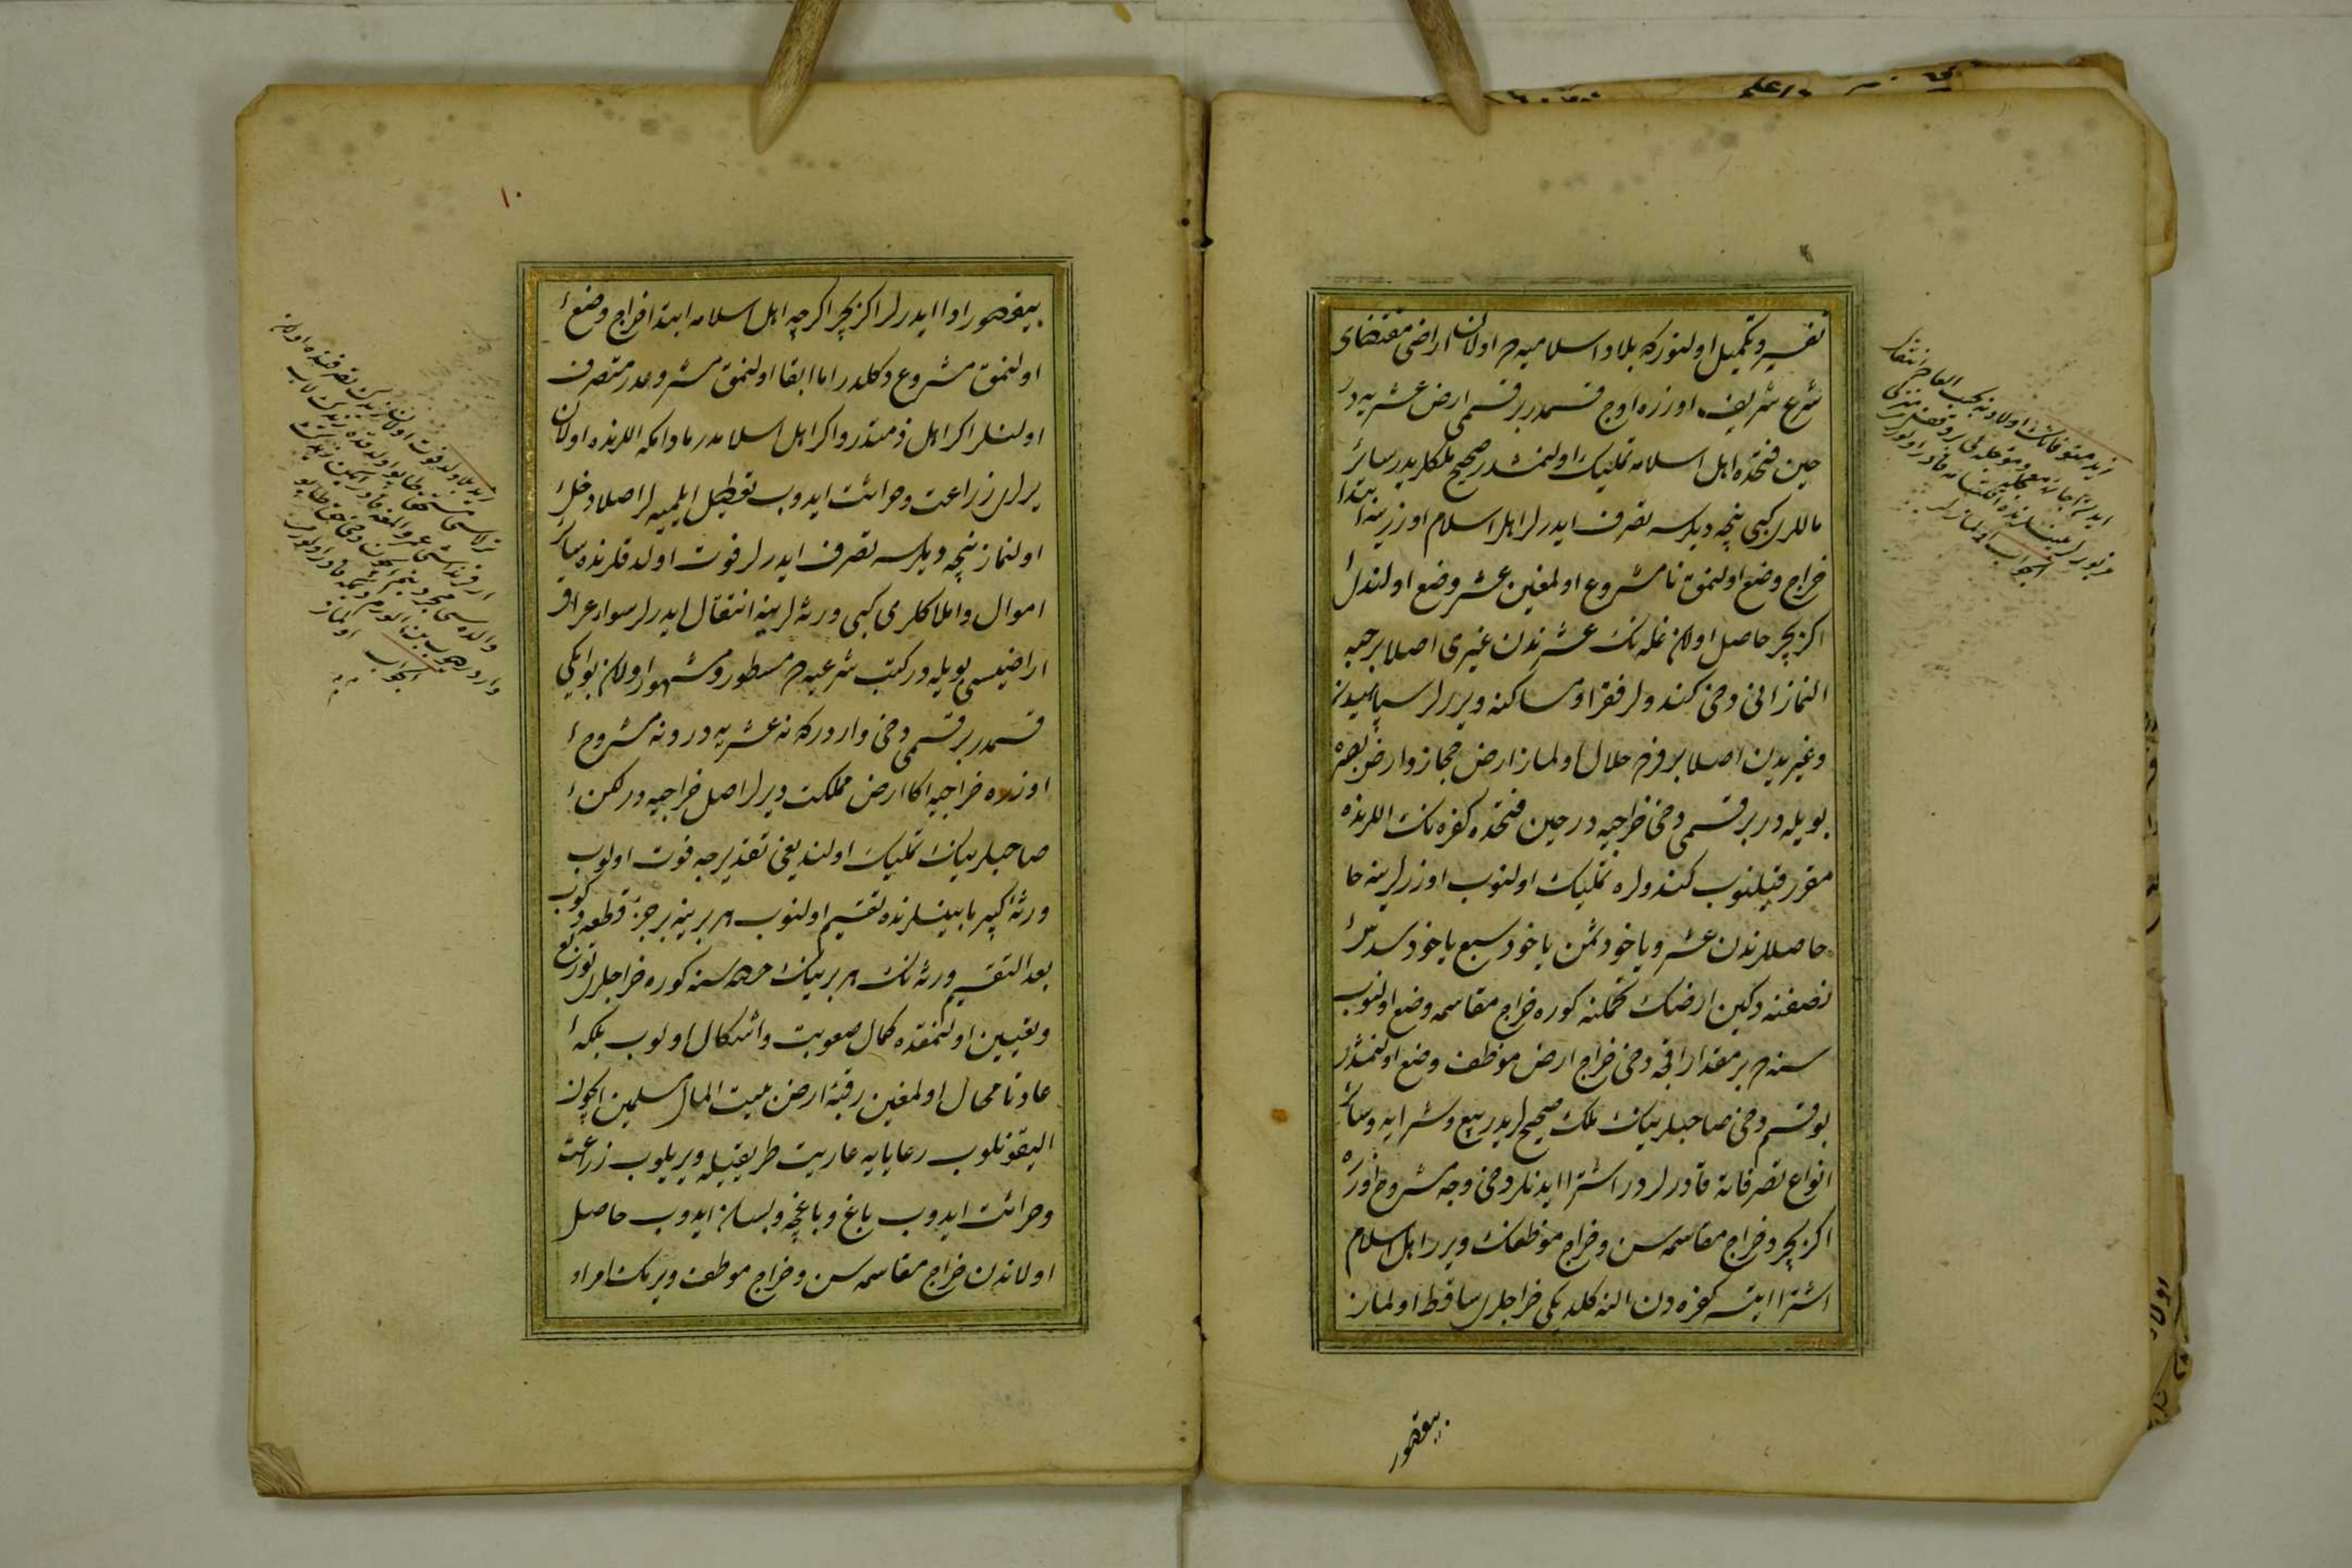 تفسير و تكميل اولنور كه بلاد اسلاميه ده اولان اراضى مقتضاى
شرع شريف اوزره اوج قسمدر بر قسمى ارض عشريه در
حين فتحده اهل اسلامه تمليك اولنمشدر صحيح ملكلريدر سائر
ماللرى كبى نيجه ديلرسه تصرف ايدرلر اهل اسلام اوزرينه ابتدا
خراج وضع اولنمق نامشروع اولمغين عشر وضع اولندى
اكر بچر حاصل اولان غله نك عشرندن غيرى اصلا بر حبه
النماز انى دخى كندولر فقرا و مساكينه ويررلر سپاهيدن
و غيريدن اصلا بر فرده حلال اولماز ارض حجاز و ارض بصره
بويله در بر قسمى دخى خراجيه در حين فتحده كفره نك اللرنده
مقرر قيلنوب كندولره تمليك اولنوب اوزرلرينه حا
حاصللرندن عشر و ياخود ثمن ياخود سبع ياخود سدس
نصفنه دكين ارضك تحملنه كوره خراج مقاسمه وضع اولنوب
سنه ده بر مقدار اقچه دخى خراج ارض موظف وضع اولنمشدر
بو قسم دخى صاحبلرينك ملك صحيحلريدر بيع و شرايه و سائر
انواع تصرفاته قادرلردر اشترا ايدنلر دخى وجه مشروح اوزره
اكر بچر و خراج مقاسمه سن و خراج موظفك ويرر اهل اسلام
اشترا ايتسه كفره دن النه كلديكى خراجلرى ساقط اولماز
بيقصور
زيد متوفانك
الجواب اولماز
١٠
بيقصور ادا ايدرلر اكر بچر اكرچه اهل اسلامه ابتدا خراج وضع
اولنمق مشروع دكلدر اما ابقا اولنمق مشروعدر متصرف
اولنلر اكر اهل ذمتدر و اكر اهل اسلامدر مادامكه اللرنده اولان
يرلرى زراعت و حراثت ايدوب تعطيل ايلميه لر اصلا دخل
اولنماز نيجه ديلرسه تصرف ايدرلر فوت اولدقلرنده سائر
اموال و املاكلرى كبى ورثه لرينه انتقال ايدرلر سواد عراق
اراضيسى بويله در كتب شرعيه ده مسطور و مشهور اولان بو ايكى
قسمدر بر قسمى دخى واردر كه نه عشريه در و نه مشروح
اوزره خراجيه اكا ارض مملكت ديرلر اصل خراجيه در لكن
صاحبلرينك تمليك اولنديغى تقديرجه فوت اولوب
ورثه كبيره بينلرنده تقسيم اولنوب هر برينه بر جزء قطعه دكوب
بعد التقسيم ورثه نك هر برينك حصه سنه كوره خراجلرى توزيع
و تعيين اولنمقده كمال صعوبت و اشكال اولوب بلكه
عادتا محال اولمغين رقبهٔ ارض بيت المال مسلمين ايچون
اليقونلوب رعايايه عاريت طريقيله ويريلوب زراعت
و حراثت ايدوب باغ و باغچه و بستان ايدوب حاصل
اولاندن خراج مقاسمه سن و خراج موظف ويرمك امر او
الجواب اولماز